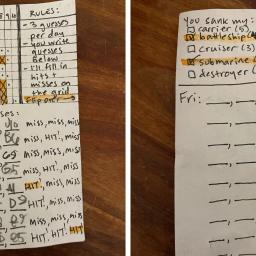 RULES:
- 3 guesses
per day
- you write
guesses
below
- I'll fill in
hits +
misses on
the grid
Flip over →
ses:
J10 miss, miss, miss
B6 miss, HIT!, miss
G9 miss, miss, miss
G5 miss, HIT!, miss
HIT!, miss, miss
D9 HIT!, miss, miss
miss, miss, miss
HIT! HIT! HIT
You sank my:
carrier (5)
battleship
cruiser (3)
submarine
destroyer
Fri: